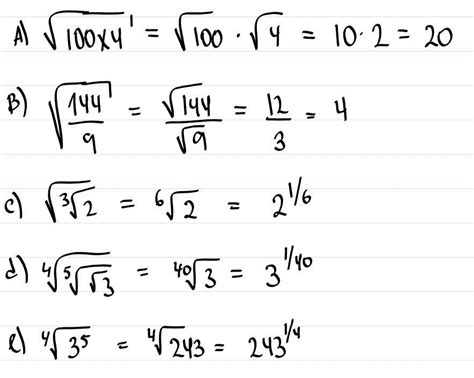 A) √(100×4) = √100 · √4 = 10 · 2 = 20
B) √(144/9) = √144/√9 = 12/3 = 4
c) √(³√2) = ⁶√2 = 2^(1/6)
d) ⁴√(⁵√(√3)) = ⁴⁰√3 = 3^(1/40)
e) ⁴√(3⁵) = ⁴√243 = 243^(1/4)